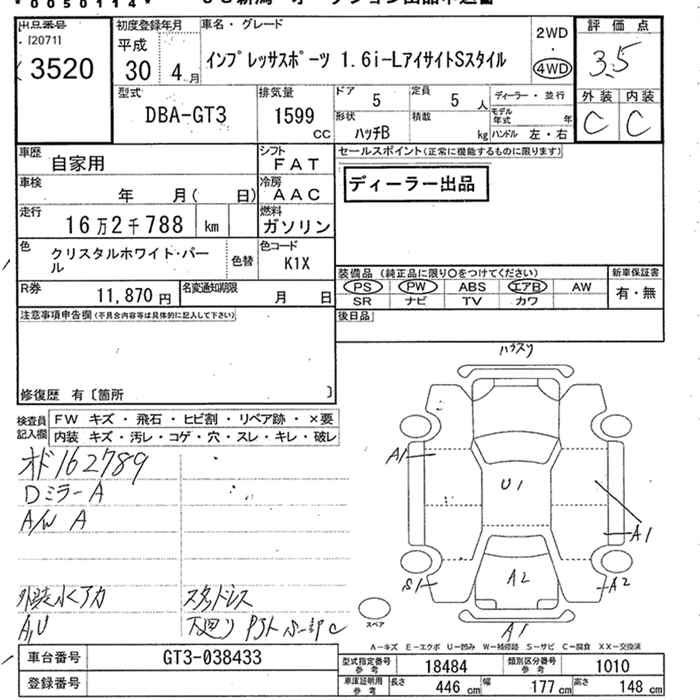 * 0050114 *
出品番号
3520
初度登録年月
平成
30 4月
車名・グレード
インプレッサスポーツ 1.6i-LアイサイトSスタイル
2WD
・
4WD
評価点
3.5
型式
DBA-GT3
排気量
1599
cc
ドア 5
定員 5 人
ディーラー・並行
形状 ハッチB
積載 kg
モデル年式 年
ハンドル 左・右
外装 内装
C C
車歴 自家用
シフト FAT
車検 年 月( 日)
冷房 AAC
走行 16万2千788 km
燃料 ガソリン
色 クリスタルホワイト・パール
色替
色コード K1X
R券 11,870円
名変通知期限 月 日
セールスポイント(正常に機能するものに限ります)
ディーラー出品
装備品 (純正品に限り○をつけてください)
新車保証書
PS PW ABS エアB AW
SR ナビ TV カワ
有・無
後日品
注意事項申告欄(不具合内容等は具体的に記入して下さい)
修復歴 有〔箇所 〕
検査員記入欄
FW キズ・飛石・ヒビ割・リペア跡・×要
内装 キズ・汚レ・コゲ・穴・スレ・キレ・破レ
オド162789
Dミラー A
A/W A
外装水アカ
A,U
スタッドレス
A1
U1
A1
S1
A2
A2
A1
スペア
A-キズ E-エクボ U-凹み W-補修跡 S-サビ C-腐食 XX-交換済
車台番号 GT3-038433
登録番号
型式指定番号参考 18484
類別区分番号参考 1010
車庫証明用参考 長さ 446 cm 幅 177 cm 高さ 148 cm